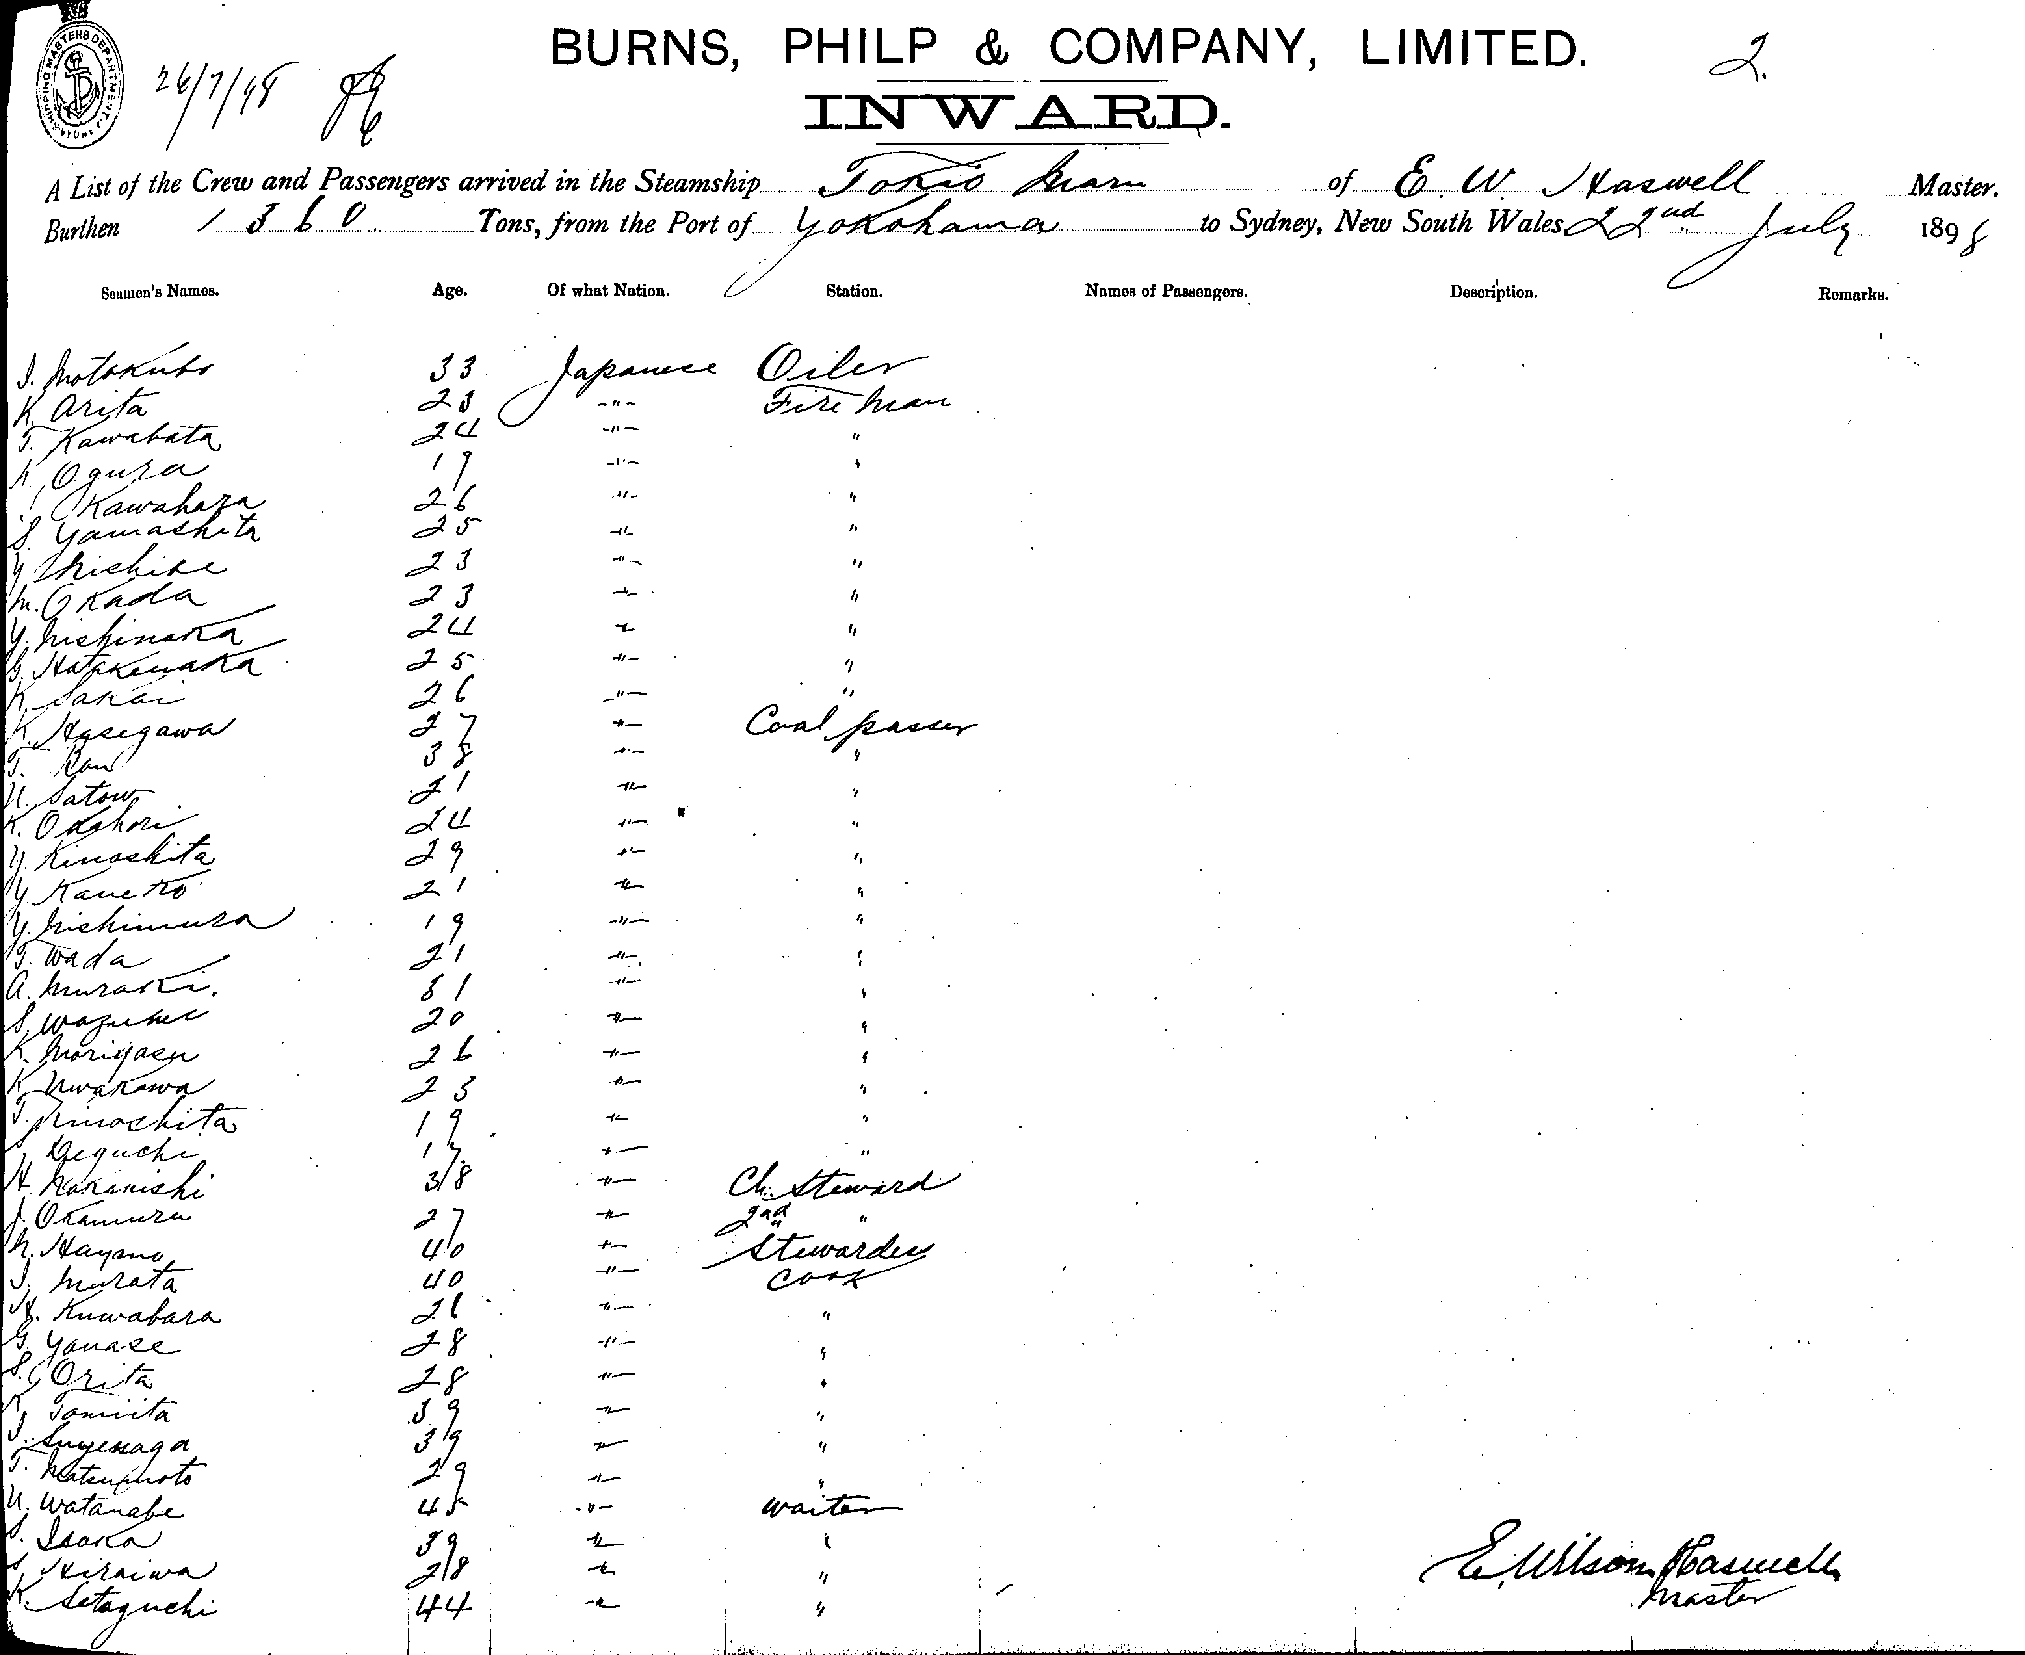 BURNS, PHILP & COMPANY, LIMITED. 2.
26/7/98
INWARD.
A List of the Crew and Passengers arrived in the Steamship Tokio Maru of E. W. Haswell Master.
Burthen 1360 Tons, from the Port of Yokohama to Sydney, New South Wales 22nd July 1898
Seamen's Names. Age. Of what Nation. Station. Names of Passengers. Description. Remarks.
I. Motokubo 33 Japanese Oiler
K. Arita 23 -"- Fireman
T. Kawabata 24 -"- "
K. Ogura 19 -"- "
Kawahara 26 -"- "
S. Yamashita 25 -"- "
Y. 23 -"- "
M. Okada 23 -"- "
Y. Nishinaka 24 -"- "
G. Hatakenaka 25 -"- "
K. Sakai 26 -"- "
K. Hasegawa 27 -"- Coal passer
T. 38 -"- "
U. Satow 21 -"- "
K. Okahori 24 -"- "
Y. Kinoshita 29 -"- "
Y. Kaneko 21 -"- "
Y. Nishimura 19 -"- "
T. Wada 21 -"- "
A. Muraki. 31 -"- "
S. 20 -"- "
K. Moriyasu 26 -"- "
K. 23 -"- "
T. Kinoshita 19 -"- "
Deguchi 17 -"- "
H. Nakanishi 38 -"- Ch. Steward
J. Okamura 27 -"- 2nd "
40 -"- Stewardess
I. Murata 40 -"- Cook
H. Kuwabara 26 -"- "
G. Yanase 28 -"- "
S. Orita 28 -"- "
K. Tomiita 39 -"- "
I. Suyenaga 39 -"- "
T. Matsumoto 29 -"- "
U. Watanabe 45 -"- waiter
S. Isaka 39 -"- "
S. Hiraiwa 28 -"- "
K. Setoguchi 44 -"- "
E. Wilson Haswell
Master